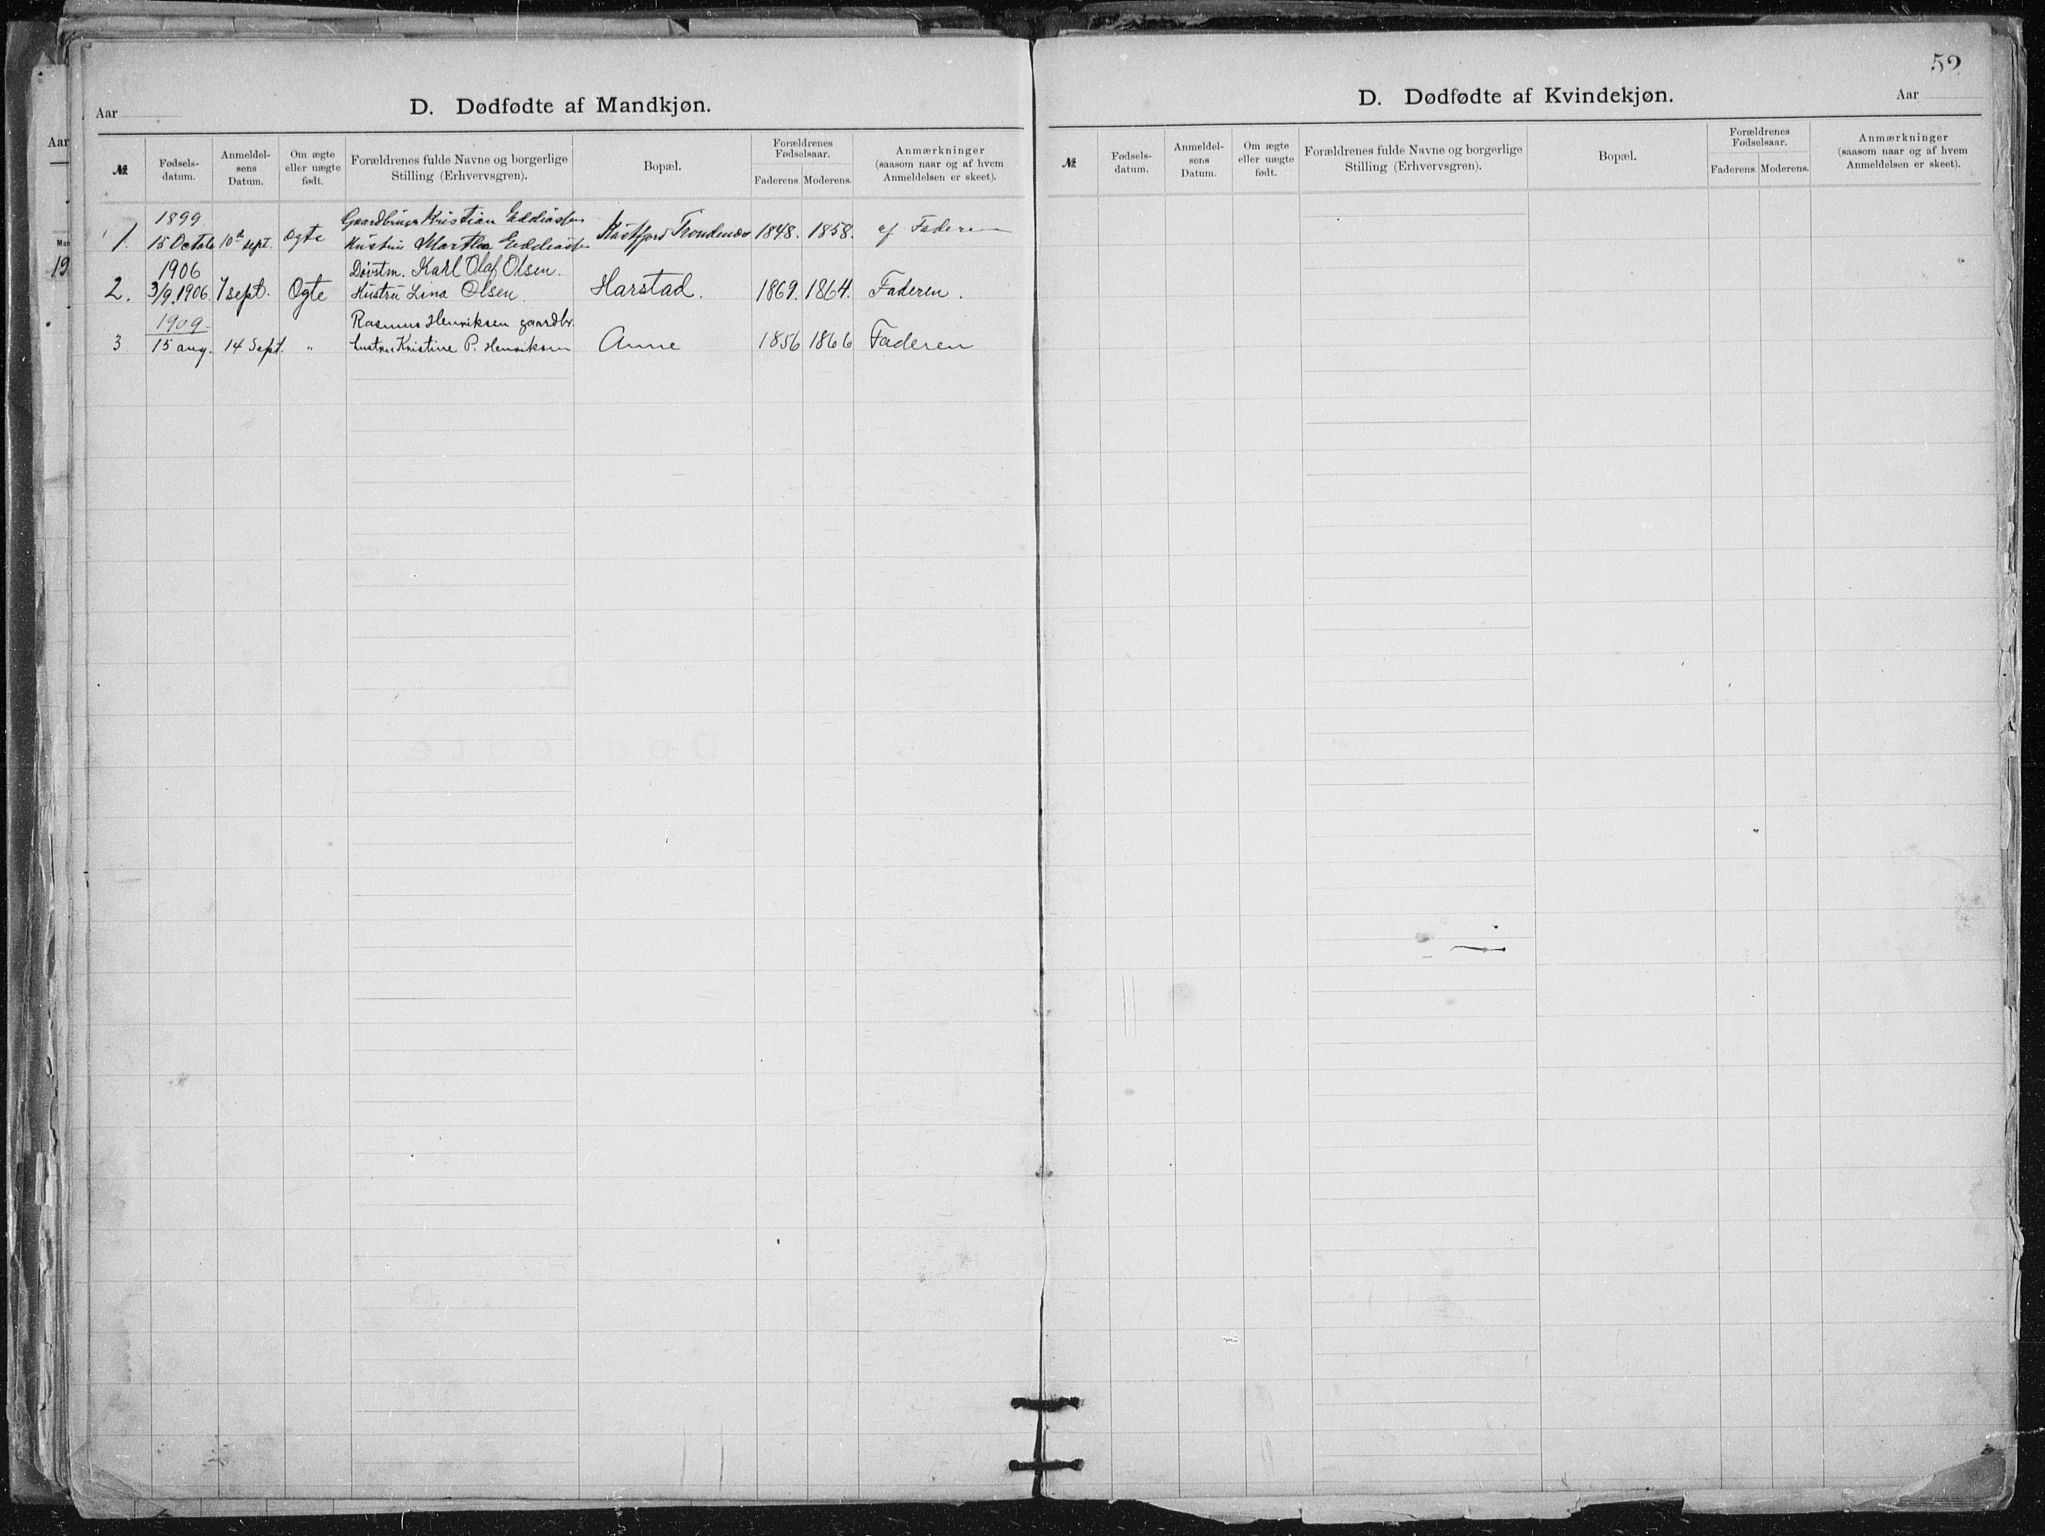 Aar
D. Dødfødte af Mandkjøn.
№
Fødsels-
datum.
Anmeldel-
sens
Datum.
Om ægte
eller uægte
født.
Forældrenes fulde Navne og borgerlige
Stilling (Erhvervsgren).
Bopæl.
Forældrenes
Fødselsaar.
Faderens. Moderens.
Anmærkninger
(saasom naar og af hvem
Anmeldelsen er skeet).
1899
Kristian
1. 15 Octob 10de sept. Ogte Hustru Martha Trondenæs 1848. 1858. af Faderen
1906
Karl Olaf Olsen.
2. 3/9. 1906. 7 sept. Ogte Hustru Lina Olsen. Harstad. 1869. 1864. Faderen.
1909
Rasmus Henriksen gaardbr.
3 15 aug. 14 Sept. " hustru Kristine P. Henriksen Anne 1856 1866 Faderen
52
D. Dødfødte af Kvindekjøn.
Aar
№
Fødsels-
datum.
Anmeldel-
sens
Datum.
Om ægte
eller uægte
født.
Forældrenes fulde Navne og borgerlige
Stilling (Erhvervsgren).
Bopæl.
Forældrenes
Fødselsaar.
Faderens. Moderens.
Anmærkninger
(saasom naar og af hvem
Anmeldelsen er skeet).
Aar
19